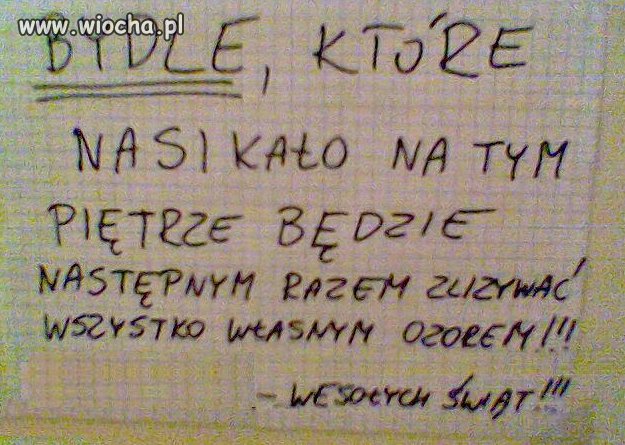 www.wiocha.pl
BYDLE, KTÓRE
NASIKAŁO NA TYM
PIĘTRZE BĘDZIE
NASTĘPNYM RAZEM ZLIZYWAĆ
WSZYSTKO WŁASNYM OZOREM!!!
- WESOŁYCH ŚWIĄT!!!